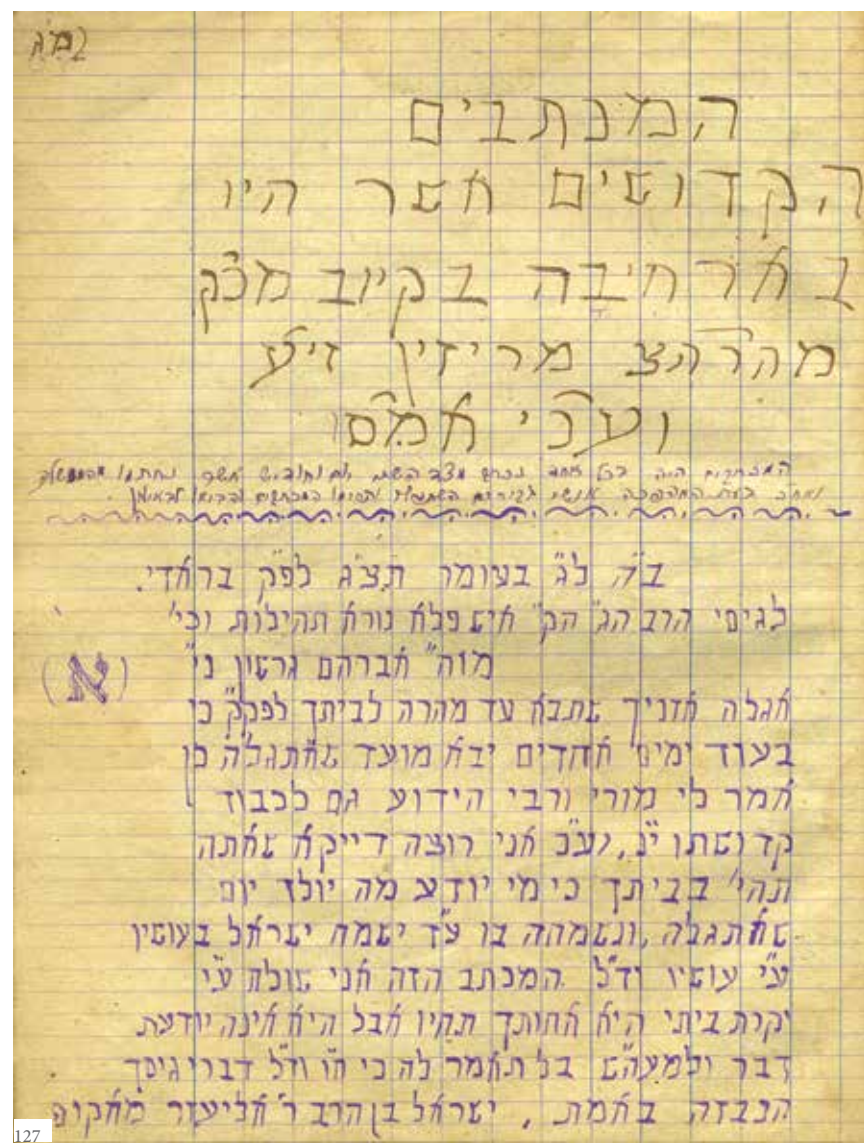 במ"ה
המכתבים
הקדושים אשר היו
בארחיבה בקיוב מכ"ק
מהרה"צ מריזין זי"ע
ועכ"י אמ"ם
המכתבים היה בכל אחד נכתב מצד השני יום וחודש אשר נחתמו
ואח"כ בעת המהפכה אנשי המכתבים והביאו
ב"ה ל"ג בעומר תצ"ג לפ"ק בראדי.
לגיסי הרב הג' הק' איש פלא נורא תהילות וכו'
מוה' אברהם גרשון ני'
(א)
אגלה אזניך שתבא עד מהרה לביתך לפק"ק כי
בעוד ימים אחדים יבא מועד שאתגלה כן
אמר לי מורי ורבי הידוע גם לכבוד
קדושתו י"נ, וע"כ אני רוצה דייקא שאתה
תהי' בביתך כי מי יודע מה יולד יום
שאתגלה, ונשמחה בו ע"ד ישמח ישראל בעושיו
ע"י עושיו וד"ל המכתב הזה אני שולח ע"י
יקרת ביתי היא אחותך תחיו אבל היא אינה יודעת
דבר ולמעה"ש בל תאמר לה כי ח"ו וד"ל דברי גיסך
הנבזה באמת, ישראל בן הרב ר' אליעזר מאקופ
127